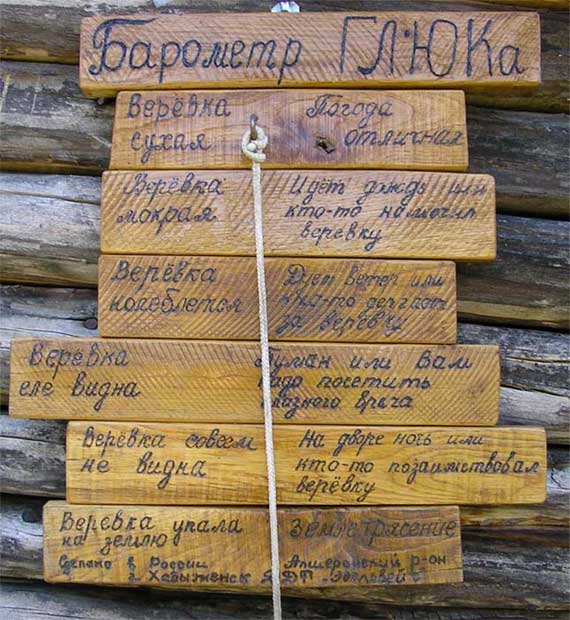 Барометр ГЛЮКа
Верёвка Погода
сухая отличная
Верёвка Идёт дождь или
мокрая кто-то намочил
верёвку
Верёвка Дует ветер или
колеблется кто-то дёргает
за верёвку
Верёвка Туман или Вам
еле видна надо посетить
глазного врача
Верёвка совсем На дворе ночь или
не видна кто-то позаимствовал
верёвку
Веревка упала Землетрясение
на землю
Сделано в России Апшеронский р-он
г. Хадыженск ДТ